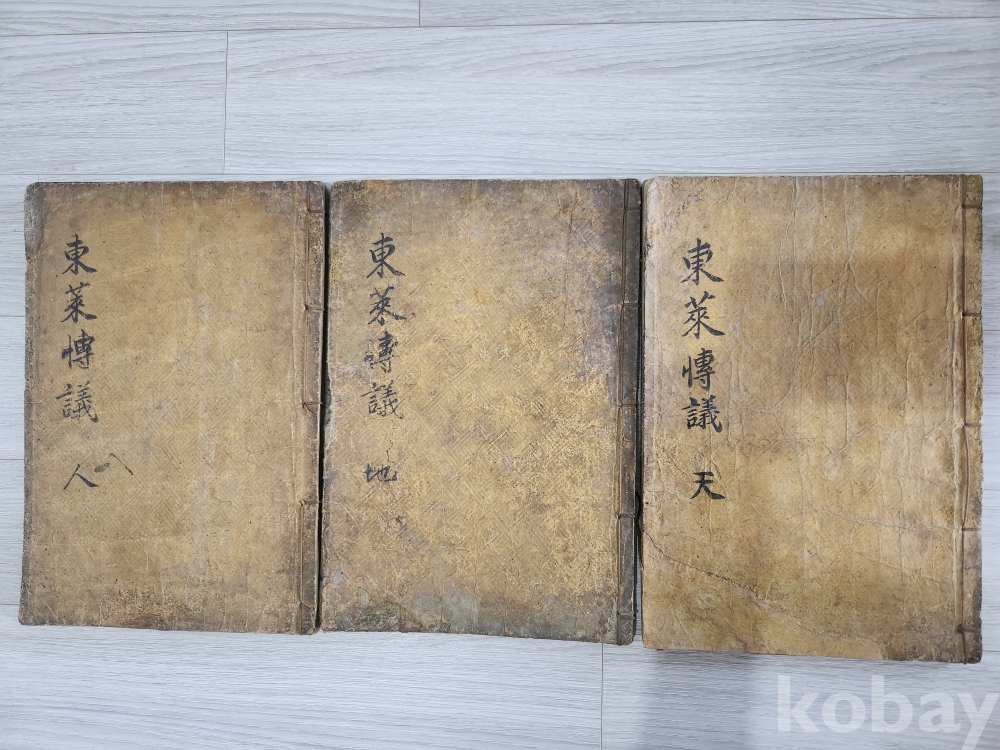 東萊愽議 天
東萊愽議 地
東萊愽議 人
kobay